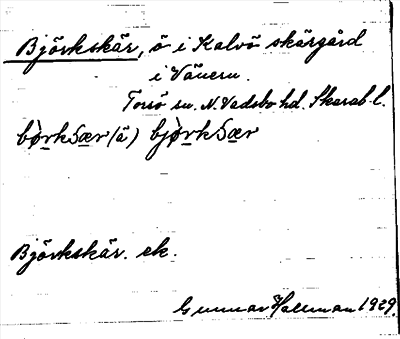 Björkskär, ö i Kalvö skärgård
i Vänern.
Torsö sn. N. Vadsbo hd. Skarab. l.
bö̀rkSær (ä) bjö̀rkSær
Björkskär. ek.
Gunnar Hallman 1929.